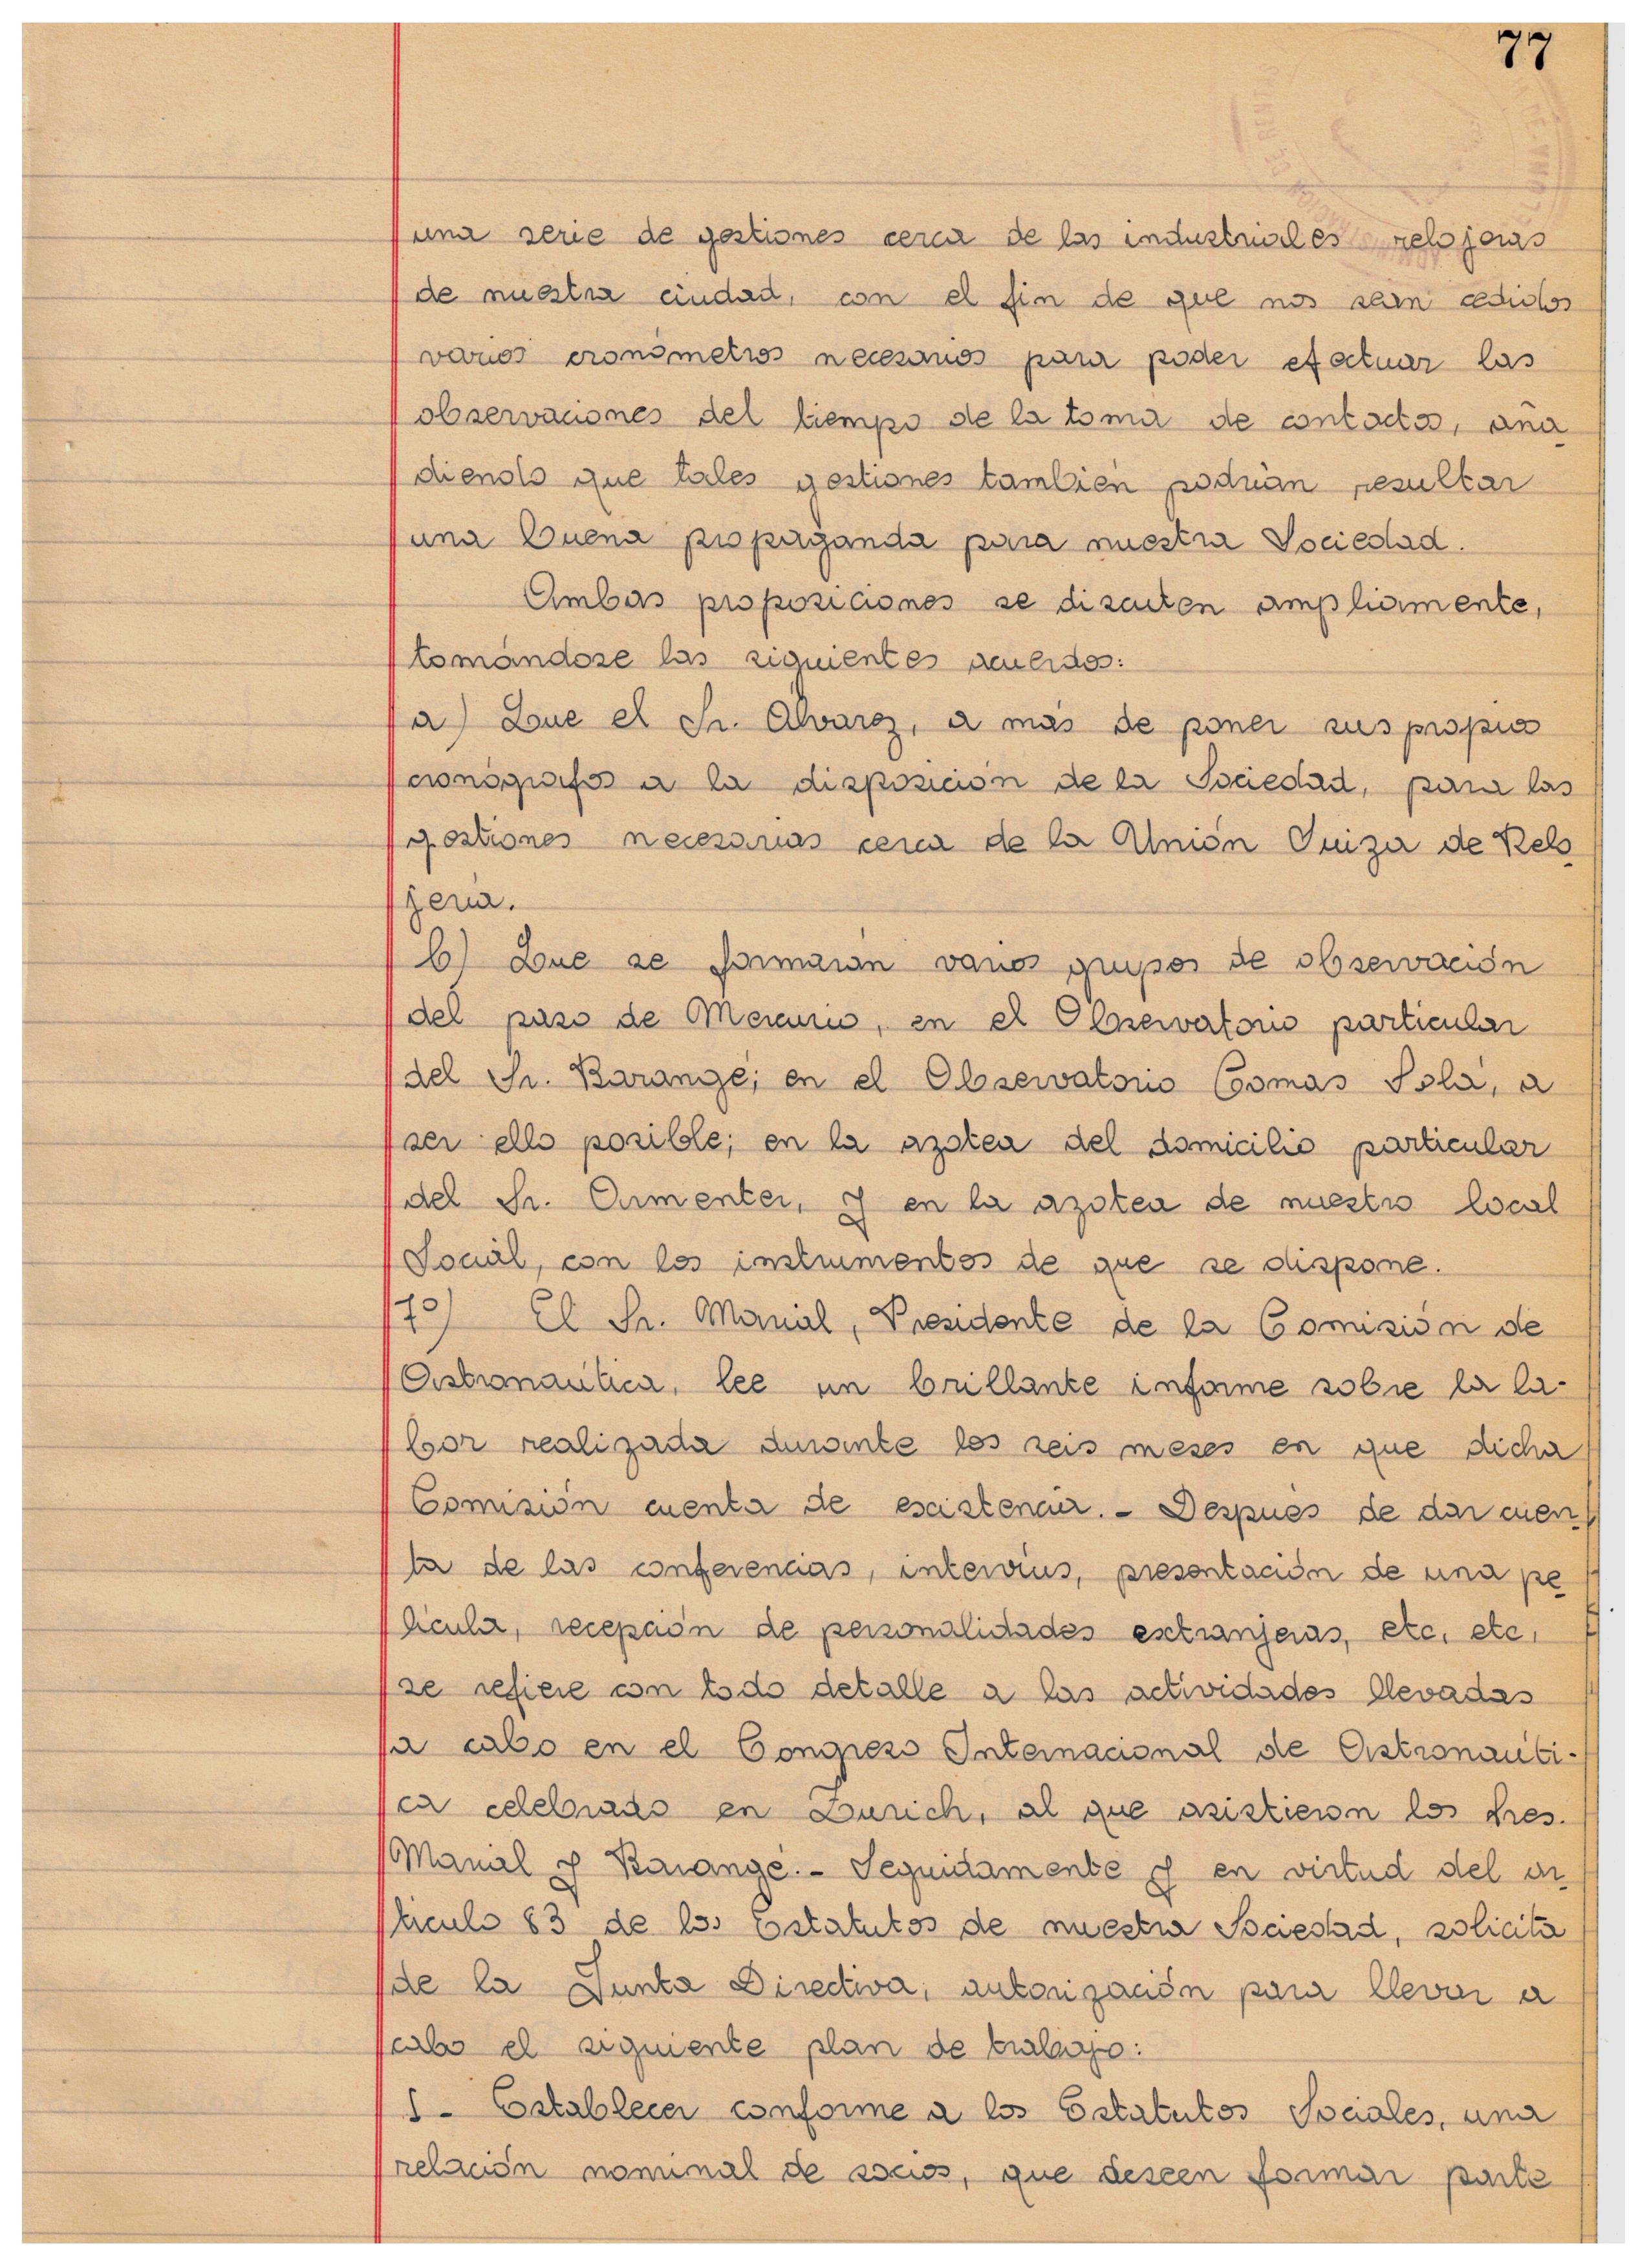 77
una serie de gestiones cerca de las industriales relojeras
de nuestra ciudad, con el fin de que nos sean cedidos
varios cronómetros necesarios para poder efectuar las
observaciones del tiempo de la toma de contactos, aña
diendo que tales gestiones también podrían resultar
una buena propaganda para nuestra Sociedad.
Ambas proposiciones se discuten ampliamente,
tomándose los siguientes acuerdos:
a) Que el Sr. Alvarez, a más de poner sus propios
cronógrafos a la disposición de la Sociedad, para las
gestiones necesarias cerca de la Unión Suiza de Relo
jería.
b) Que se formarán varios grupos de observación
del paso de Mercurio, en el Observatorio particular
del Sr. Barangé; en el Observatorio Comas Solá, a
ser ello posible; en la azotea del domicilio particular
del Sr. Armenter, y en la azotea de nuestro local
Social, con los instrumentos de que se dispone.
7º) El Sr. Marial, Presidente de la Comisión de
Astronaútica, lee un brillante informe sobre la la-
bor realizada durante los seis meses en que dicha
Comisión cuenta de existencia. - Después de dar cuen
ta de las conferencias, interviús, presentación de una pe
lícula, recepción de personalidades extranjeras, etc, etc,
se refiere con todo detalle a las actividades llevadas
a cabo en el Congreso Internacional de Astronaúti-
ca celebrado en Zurich, al que asistieron los Sres.
Marial y Barangé. - Seguidamente y en virtud del ar
tículo 83 de los Estatutos de nuestra Sociedad, solicita
de la Junta Directiva, autorización para llevar a
cabo el siguiente plan de trabajo:
1 - Establecer conforme a los Estatutos Sociales, una
relación nominal de socios, que deseen formar parte